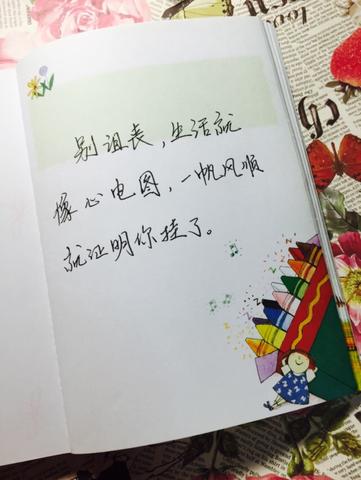 别沮丧,生活就
像心电图,一帆风顺
就证明你挂了。